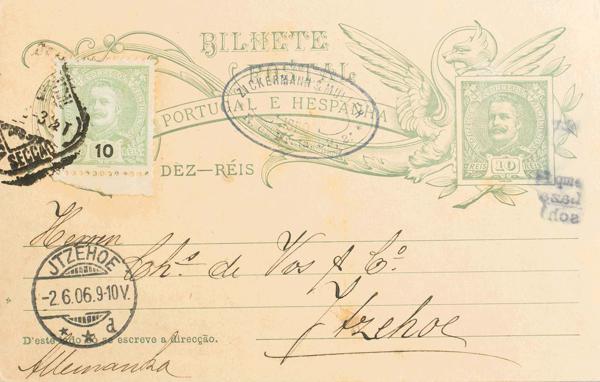 BILHETE
POSTAL
PORTUGAL E HESPANHA
ZICKERMANN & MÜLLER
10
SECÇÃO
REIS 10 REIS
DEZ-RÉIS
Herren
Chs. de Vos & Co.
JTZEHOE
-2.6.06.9-10V.
d
Itzehoe
D'este lado só se escreve a direcção.
Allemanha